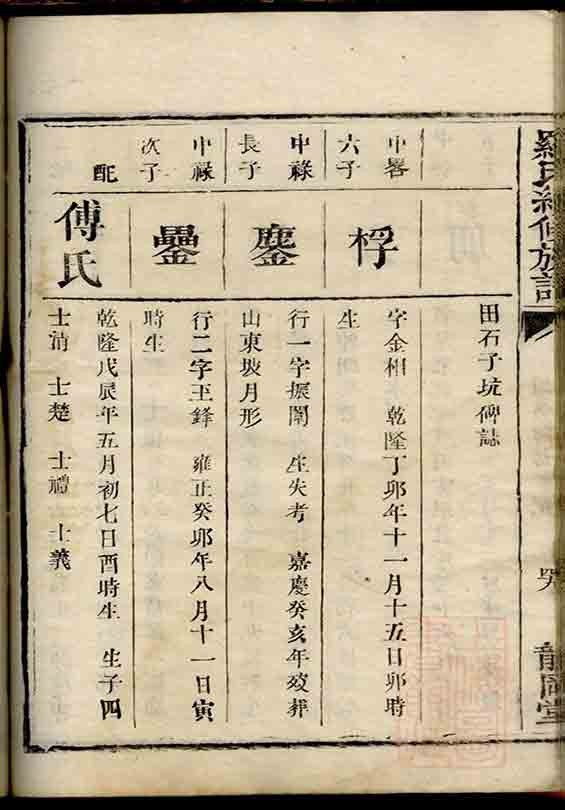 羅氏續修族譜
龍岡堂
田石子坑碑誌
中畧
六子
桴
字金相 乾隆丁卯年十一月十五日卯時
生
中祿
長子
鏖
行一字振閣 生失考 嘉慶癸亥年歿葬
山東坡月形
中祿
次子
罍
行二字玉鋒 雍正癸卯年八月十一日寅
時生
配
傅氏
乾隆戊辰年五月初七日酉時生 生子四
士清 士楚 士禮 士義